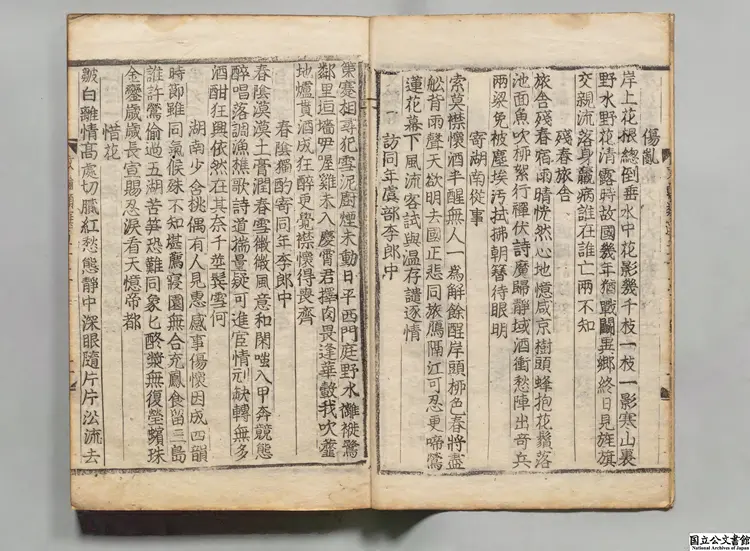 傷亂
岸上花根總倒垂水中花影幾千枝一枝一影寒山裏
野水野花清露時故國幾年猶戰鬪異鄉終日見旌旗
交親流落身羸病誰在誰亡兩不知
殘春旅舍
旅舍殘春宿雨晴恍然心地憶咸京樹頭蜂抱花鬚落
池面魚吹柳絮行禪伏詩魔歸靜域酒衝愁陣出奇兵
兩梁免被塵埃汚拭拂朝簪待眼明
寄湖南從事
索莫襟懷酒半醒無人一爲解餘酲岸頭柳色春將盡
舩背雨聲天欲明去國正悲同旅鴈隔江可忍更啼鶯
蓮花幕下風流客試與溫存譴逐情
訪同年虞部李郎中
策蹇相尋犯雪泥廚煙未動日平西門庭野水襹褷鷺
鄰里垣墻咿喔雞未入慶霄君擇肉畏逢華轂我吹虀
地爐貰酒成狂醉更覺襟懷得喪齊
春陰獨酌寄同年李郎中
春陰漠漠土膏潤春雪微微風意和閑嗤入甲奔競態
醉唱落調漁樵歌詩道揣量疑可進宦情刓缺轉無多
酒酣狂興依然在其奈千莖鬢雪何
湖南少含桃偶有人見惠感事傷懷因成四韻
時節雖同氣候殊不知堪薦寢園無合充鳳食留三島
誰許鶯偷過五湖苦笋恐難同象匕酪漿無復瑩蠙珠
金鑾歲歲長宣賜忍淚看天憶帝都
惜花
皺白離情高處切膩紅愁態靜中深眼隨片片㳂流去
国立公文書館
National Archives of Japan